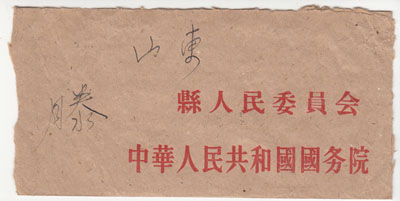 山東
滕縣人民委員会
中華人民共和國國务院